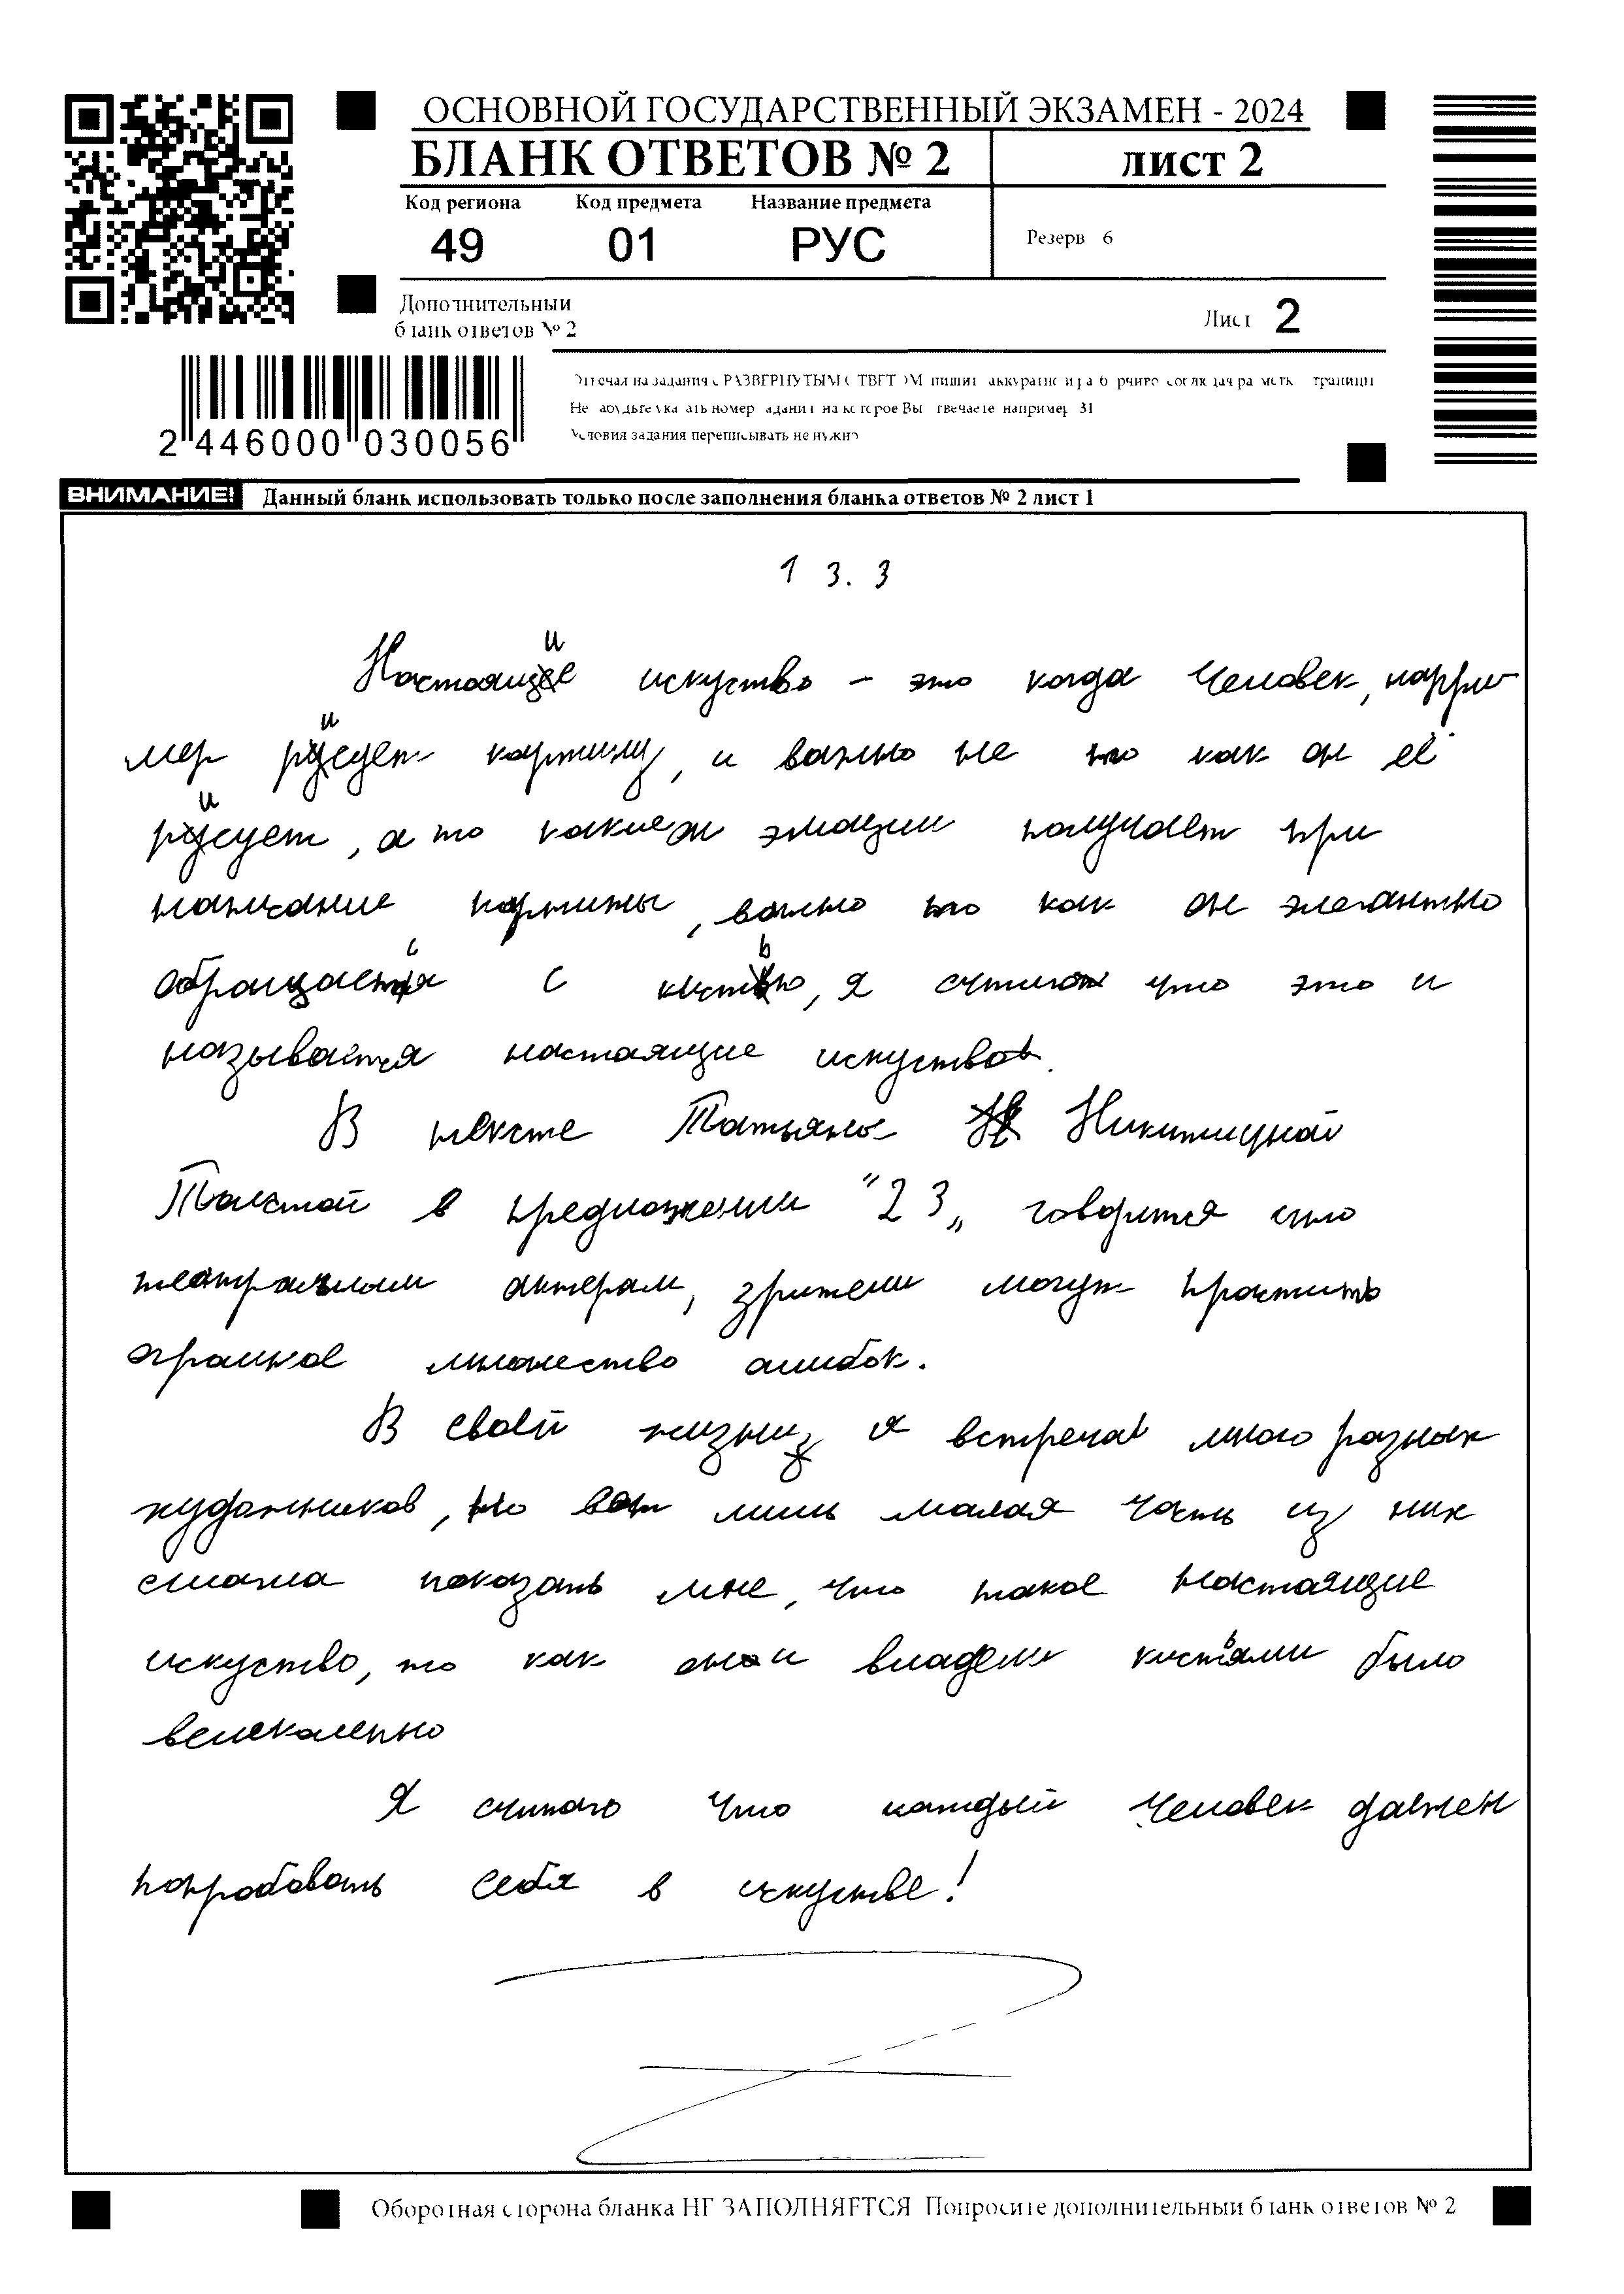 ОСНОВНОЙ ГОСУДАРСТВЕННЫЙ ЭКЗАМЕН - 2024
БЛАНК ОТВЕТОВ № 2
ЛИСТ 2
Код региона Код предмета Название предмета
49 01 РУС
Резерв 6
Дополнительный
бланк ответов № 2
Лист 2
2 446000 030056
Условия задания переписывать не нужно
ВНИМАНИЕ! Данный бланк использовать только после заполнения бланка ответов № 2 лист 1
13.3
Настоящие искуство - это когда человек, напри
мер рисует картину, и важно не то как он её
рисует, а то какие он эмоции получает при
написание картины, важно то как он элегантно
обращается с кистью, я считаю что это и
называется настоящие искуство.
В тексте Татьяны Никитицной
Толстой в предложении "23„ говорится что
театралным актерам, зрители могут простить
огромное множество ошибок.
В своей жизни я встречал много разных
художников, но вот лишь малая часть из них
смогла показать мне, что такое настоящие
искуство, то как они владели кистьями было
великолепно
Я считаю что каждый человек должен
попробовать себя в искустве!
Оборотная сторона бланка НЕ ЗАПОЛНЯЕТСЯ Попросите дополнительный бланк ответов № 2